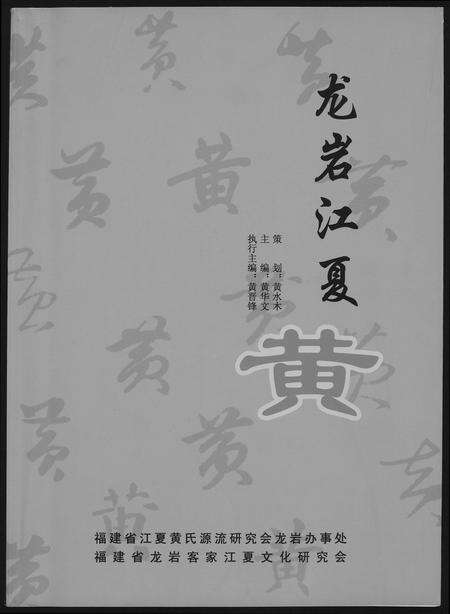 龙岩江夏
黄
策 划：黄水木
主 编：黄华文
执行主编：黄晋锋
福建省江夏黄氏源流研究会龙岩办事处
福建省龙岩客家江夏文化研究会